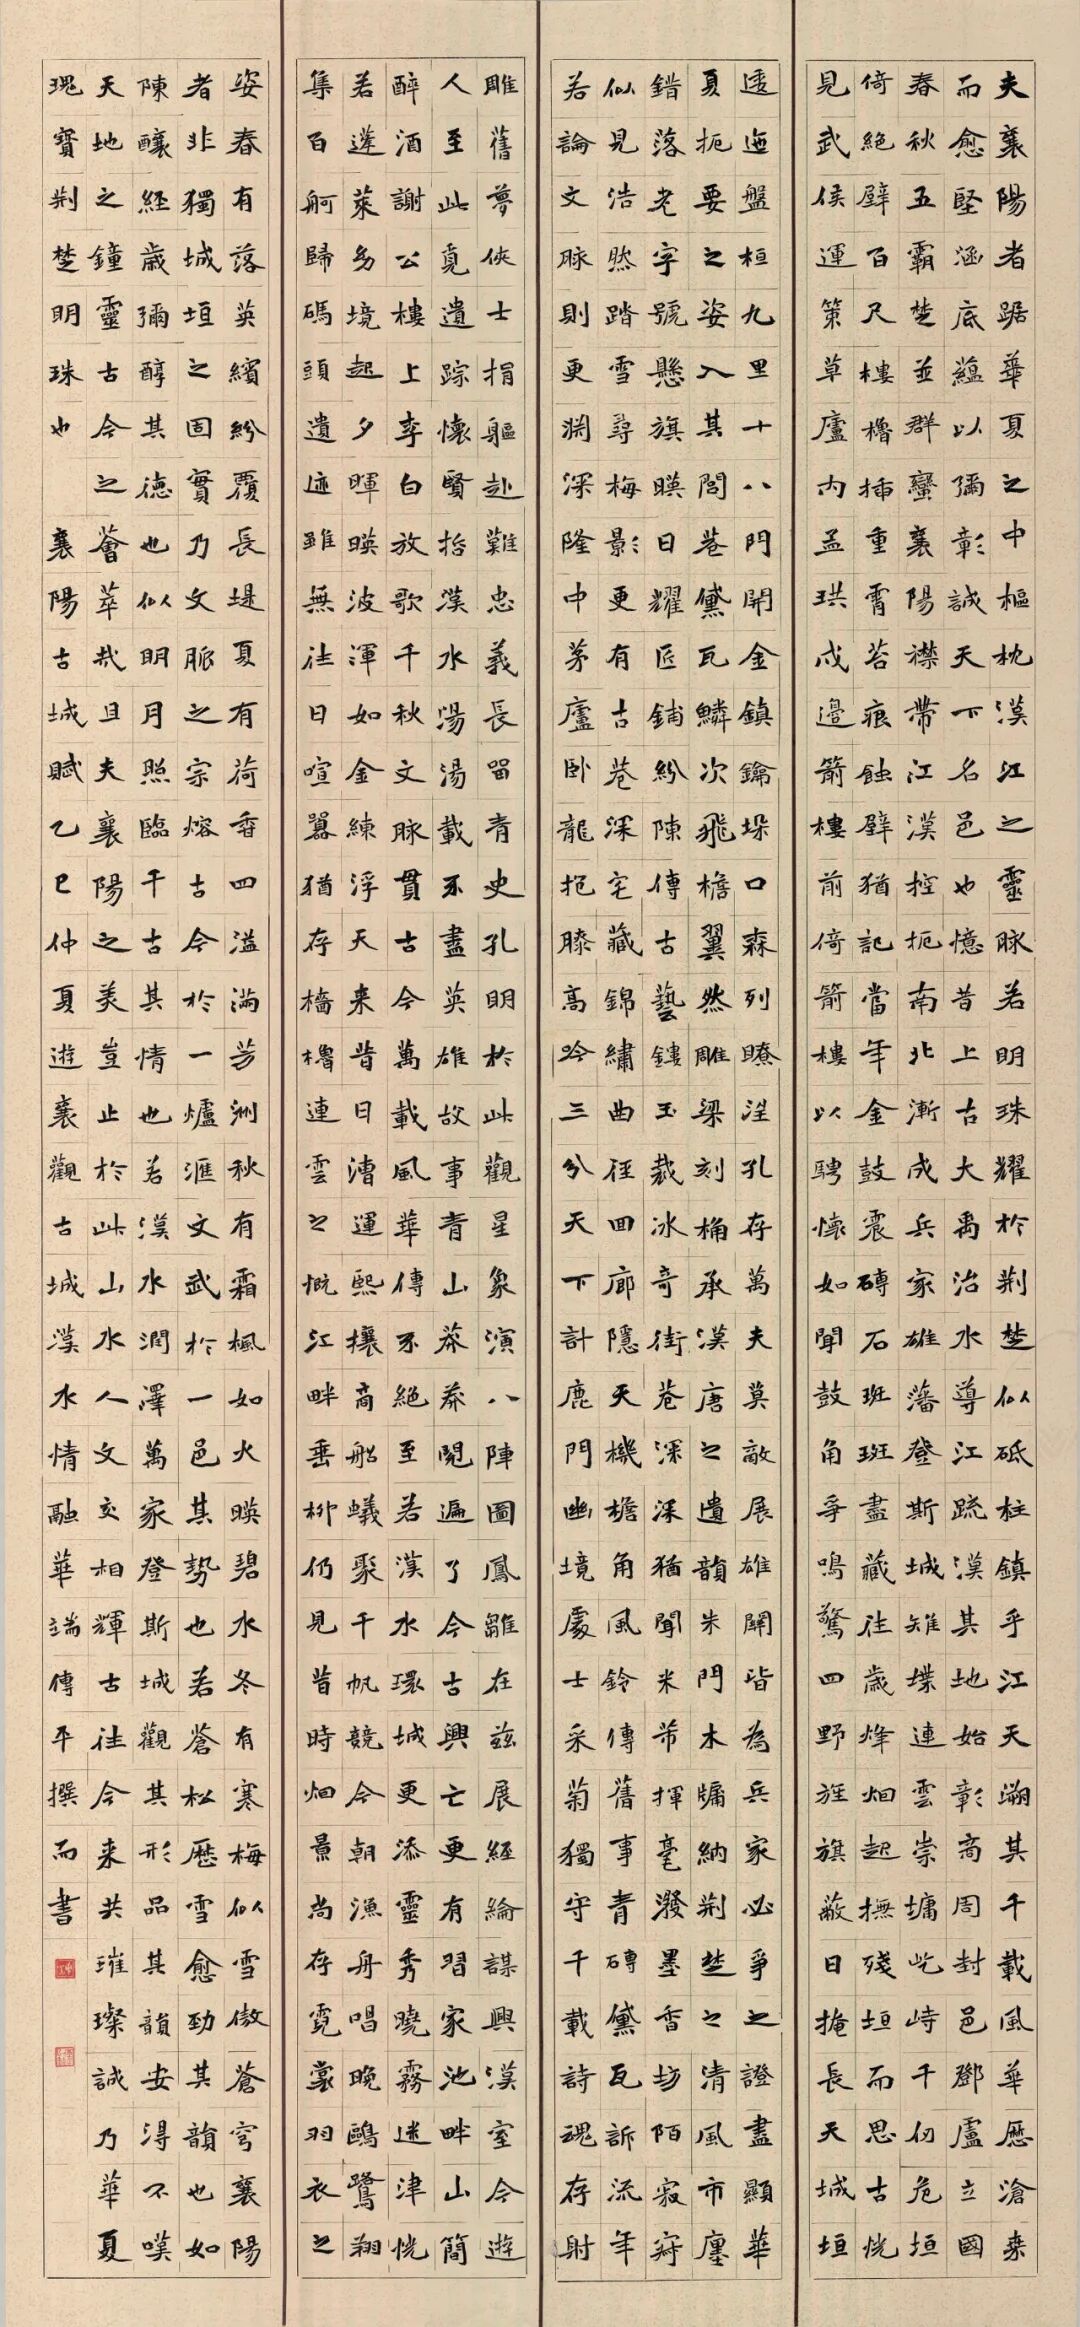 夫襄陽者踞華夏之中樞枕漢江之靈脉若明珠耀於荆楚似砥柱鎮乎江天溯其千載風華歷滄桑
而愈堅涵底蘊以彌彰誠天下名邑也憶昔上古大禹治水導江疏漢其地始彰商周封邑鄧盧立國
春秋五霸楚並群蠻襄陽襟帶江漢控扼南北漸成兵家雄藩登斯城雉堞連雲崇墉屹峙千仞危垣
倚絕壁百尺樓櫓插重霄苔痕蝕壁猶記當年金鼓震磚石斑斑盡藏往歲烽烟起撫殘垣而思古恍
見武侯運策草廬内孟珙戍邊箭樓前倚箭樓以騁懷如聞鼓角爭鳴驚四野旌旗蔽日掩長天城垣
逶迤盤桓九里十八門開金鎮鑰垛口森列瞭望孔存萬夫莫敵展雄關皆為兵家必爭之證盡顯華
夏扼要之姿入其閭巷黛瓦鱗次飛檐翼然雕梁刻桷承漢唐之遺韻朱門木牖納荆楚之清風市廛
錯落老字號懸旗暎日耀匠鋪紛陳傳古藝鏤玉裁冰奇街巷深深猶聞米芾揮毫潑墨香坊陌寂寂
似見浩然踏雪尋梅影更有古巷深宅藏錦繡曲徑回廊隱天機檐角風鈴傳舊事青磚黛瓦訴流年
若論文脉則更淵深隆中茅廬卧龍抱膝高吟三分天下計鹿門幽境處士采菊獨守千載詩魂存射
雕舊夢俠士捐軀赴難忠義長留青史孔明於此觀星象演八陣圖鳳雛在茲展經綸謀興漢室今遊
人至此覓遺踪懷賢抬漢水湯湯載不盡英雄故事青山莽莽閱遍了今古興亡更有習家池畔山簡
醉酒謝公樓上李白放歌千秋文脉貫古今萬載風華傳不絕至若漢水環城更添靈秀曉霧迷津恍
若蓬萊幻境起夕暉暎波渾如金練浮天来昔日漕運熙攘商船蟻聚千帆競今朝漁舟唱晚鷗鷺翔
集百舸歸碼頭遺迹雖無往日喧囂猶存檣櫓連雲之慨江畔垂柳仍見昔時烟景尚存霓裳羽衣之
姿春有落英繽紛覆長堤夏有荷香四溢滿芳洲秋有霜楓如火暎碧水冬有寒梅似雪傲蒼穹襄陽
者非獨城垣之固實乃文脈之宗熔古今於一爐滙文武於一邑其勢也若蒼松歷雪愈勁其韻也如
陳釀經歲彌醇其德也似明月照臨千古其情也若漢水潤澤萬家登斯城觀其形品其韻安得不嘆
天地之鐘靈古今之薈萃哉且夫襄陽之美豈止於此山水人文交相輝古往今来共璀璨誠乃華夏
瑰寶荆楚明珠也 襄陽古城賦乙巳仲夏遊襄觀古城漢水情融華端傳平撰而書